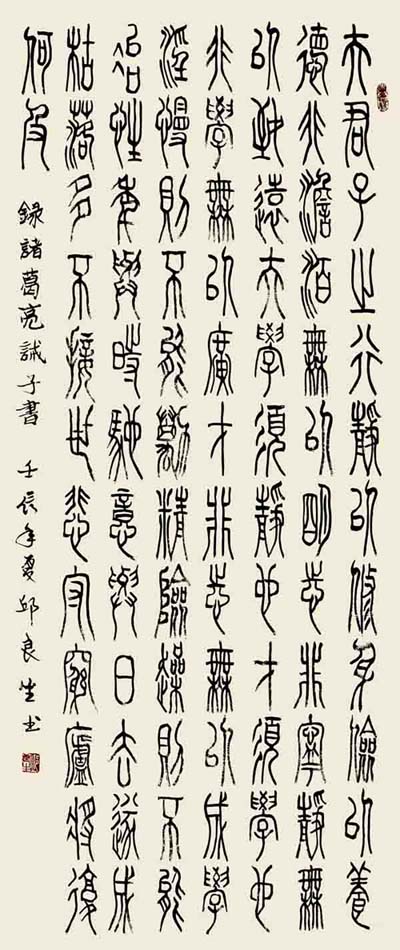 夫君子之行靜以修身儉以養
德非澹泊無以明志非寧靜無
以致遠夫學須靜也才須學也
非學無以廣才非志無以成學
淫慢則不能勵精險躁則不能
冶性年與時馳意與日去遂成
枯落多不接世悲守窮廬將復
何及
錄諸葛亮誡子書 壬辰年夏邱良生书